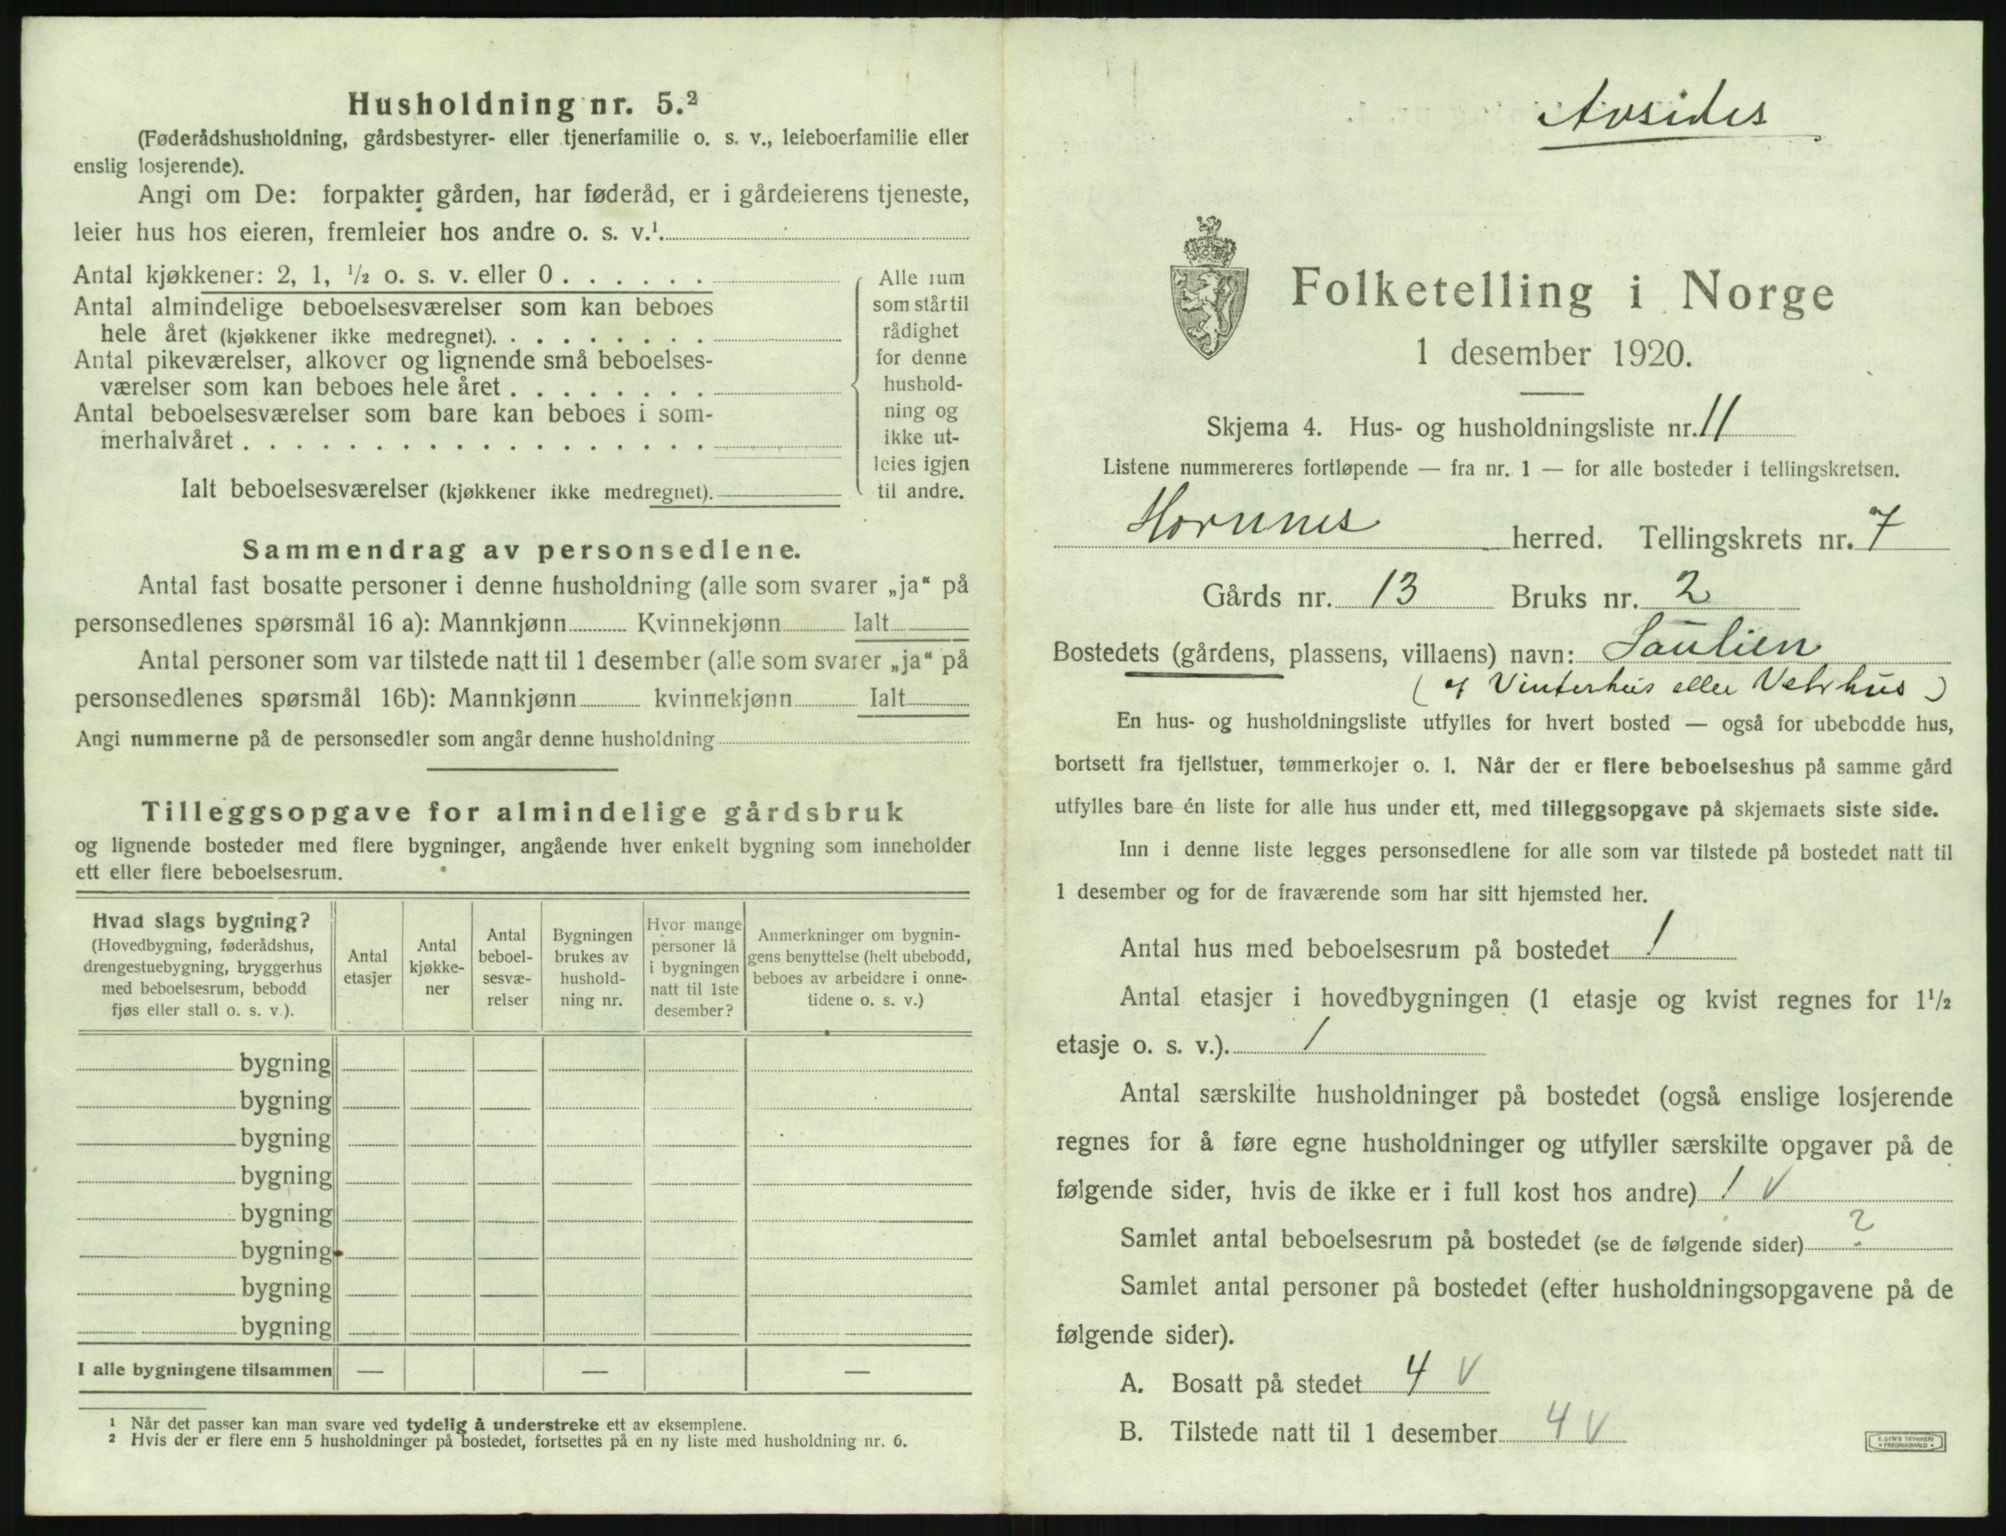 Husholdning nr. 5.²
(Føderådshusholdning, gårdsbestyrer- eller tjenerfamilie o. s. v., leieboerfamilie eller
enslig losjerende).
Angi om De: forpakter gården, har føderåd, er i gårdeierens tjeneste,
leier hus hos eieren, fremleier hos andre o. s. v.¹
Antal kjøkkener: 2, 1, ½ o. s. v. eller 0 . . . . . .
Antal almindelige beboelsesværelser som kan beboes
hele året (kjøkkener ikke medregnet). . . . . . . . .
Antal pikeværelser, alkover og lignende små beboelses-
værelser som kan beboes hele året . . . . . . . .
Antal beboelsesværelser som bare kan beboes i som-
merhalvåret . . . . . . . . . . . . . . . . . .
Ialt beboelsesværelser (kjøkkener ikke medregnet).
Alle rum
som står til
rådighet
for denne
hushold-
ning og
ikke ut-
leies igjen
til andre.
Sammendrag av personsedlene.
Antal fast bosatte personer i denne husholdning (alle som svarer „ja“ på
personsedlenes spørsmål 16 a): Mannkjønn Kvinnekjønn Ialt
Antal personer som var tilstede natt til 1 desember (alle som svarer „ja“ på
personsedlenes spørsmål 16b): Mannkjønn kvinnekjønn Ialt
Angi nummerne på de personsedler som angår denne husholdning
Tilleggsopgave for almindelige gårdsbruk
og lignende bosteder med flere bygninger, angående hver enkelt bygning som inneholder
ett eller flere beboelsesrum.
Hvad slags bygning?
(Hovedbygning, føderådshus,
drengestuebygning, bryggerhus
med beboelsesrum, bebodd
fjøs eller stall o. s. v.).
Antal
etasjer
Antal
kjøkke-
ner
Antal
beboel-
sesvæ-
relser
Bygningen
brukes av
hushold-
ning nr.
Hvor mange
personer lå
i bygningen
natt til 1ste
desember?
Anmerkninger om bygnin-
gens benyttelse (helt ubebodd,
beboes av arbeidere i onne-
tidene o. s. v.)
bygning
bygning
bygning
bygning
bygning
bygning
bygning
bygning
I alle bygningene tilsammen — — —
¹ Når det passer kan man svare ved tydelig å understreke ett av eksemplene.
² Hvis der er flere enn 5 husholdninger på bostedet, fortsettes på en ny liste med husholdning nr. 6.
Avsides
Folketelling i Norge
1 desember 1920.
Skjema 4. Hus- og husholdningsliste nr. 11
Listene nummereres fortløpende — fra nr. 1 — for alle bosteder i tellingskretsen.
Hornnes herred. Tellingskrets nr. 7
Gårds nr. 13 Bruks nr. 2
Bostedets (gårdens, plassens, villaens) navn: Saulien
( Vinterhus eller Vetrhus )
En hus- og husholdningsliste utfylles for hvert bosted — også for ubebodde hus,
bortsett fra fjellstuer, tømmerkojer o. l. Når der er flere beboelseshus på samme gård
utfylles bare én liste for alle hus under ett, med tilleggsopgave på skjemaets siste side.
Inn i denne liste legges personsedlene for alle som var tilstede på bostedet natt til
1 desember og for de fraværende som har sitt hjemsted her.
Antal hus med beboelsesrum på bostedet 1
Antal etasjer i hovedbygningen (1 etasje og kvist regnes for 1½
etasje o. s. v.). 1
Antal særskilte husholdninger på bostedet (også enslige losjerende
regnes for å føre egne husholdninger og utfyller særskilte opgaver på de
følgende sider, hvis de ikke er i full kost hos andre) 1 V
Samlet antal beboelsesrum på bostedet (se de følgende sider) ?
Samlet antal personer på bostedet (efter husholdningsopgavene på de
følgende sider).
A. Bosatt på stedet 4 V
B. Tilstede natt til 1 desember 4 V